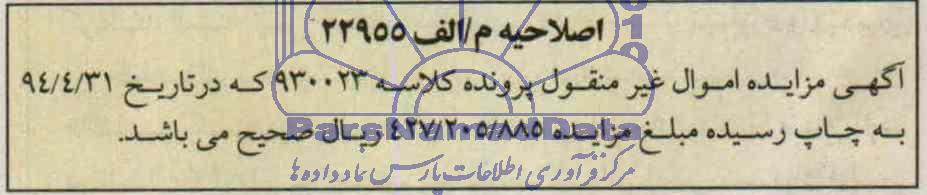 اصلاحیه م/الف ۲۲۹۵۵
آگهی مزایده اموال غیر منقول پرونده کلاسه ۹۳۰۰۲۳ که درتاریخ ۹۴/۴/۳۱
به چاپ رسیده مبلغ مزایده ۴۲۷/۲۰۵/۸۸۵ ریال صحیح می باشد.
ParsNamadData
مرکز فرآوری اطلاعات پارس نماد داده ها